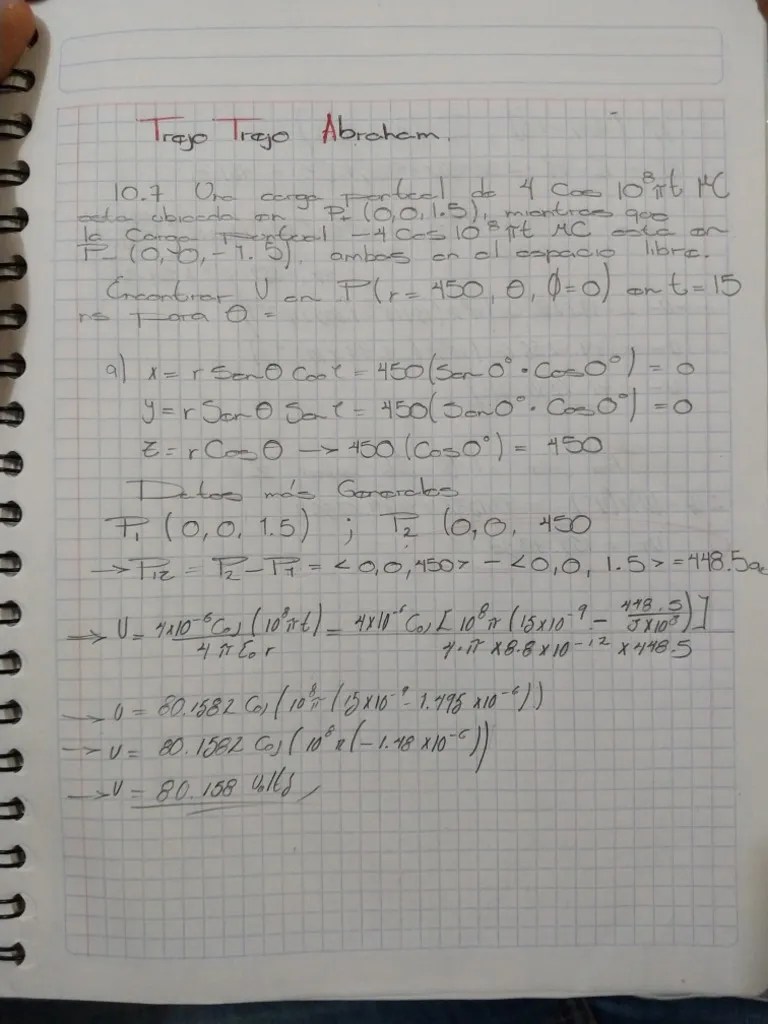 Trejo Trejo Abraham.
10.7 Una carga puntual de 4 Cos 10⁸πt μC
esta ubicada en P₊ (0,0,1.5), mientras que
la Carga puntual -4 Cos 10⁸πt μC esta en
P₋ (0,0,-1.5). ambas en el espacio libre.
Encontrar V en P(r=450, θ, Ø=0) en t=15
ns para θ =
a) x = r Senθ Cos = 450(Sen0°·Cos0°) = 0
y = r Senθ Sen = 450(Sen0°·Cos0°) = 0
z = r Cosθ → 450 (Cos0°) = 450
Datos más Generales
P₁ (0,0,1.5) ; P₂ (0,0,450
→ P₁₂ = P₂ - P₁ = <0,0,450> - <0,0,1.5> = 448.5
→ V = 4x10⁻⁶ Cos (10⁸πt) / 4πε₀r = 4x10⁻⁶ Cos [10⁸π (15x10⁻⁹ - 448.5/3x10⁸)] / 4·π x8.8x10⁻¹² x448.5
→ V = 80.1582 Cos (10⁸π (15x10⁻⁹ - 1.495x10⁻⁶))
→ V = 80.1582 Cos (10⁸π (-1.48x10⁻⁶))
→ V = 80.158 Volts